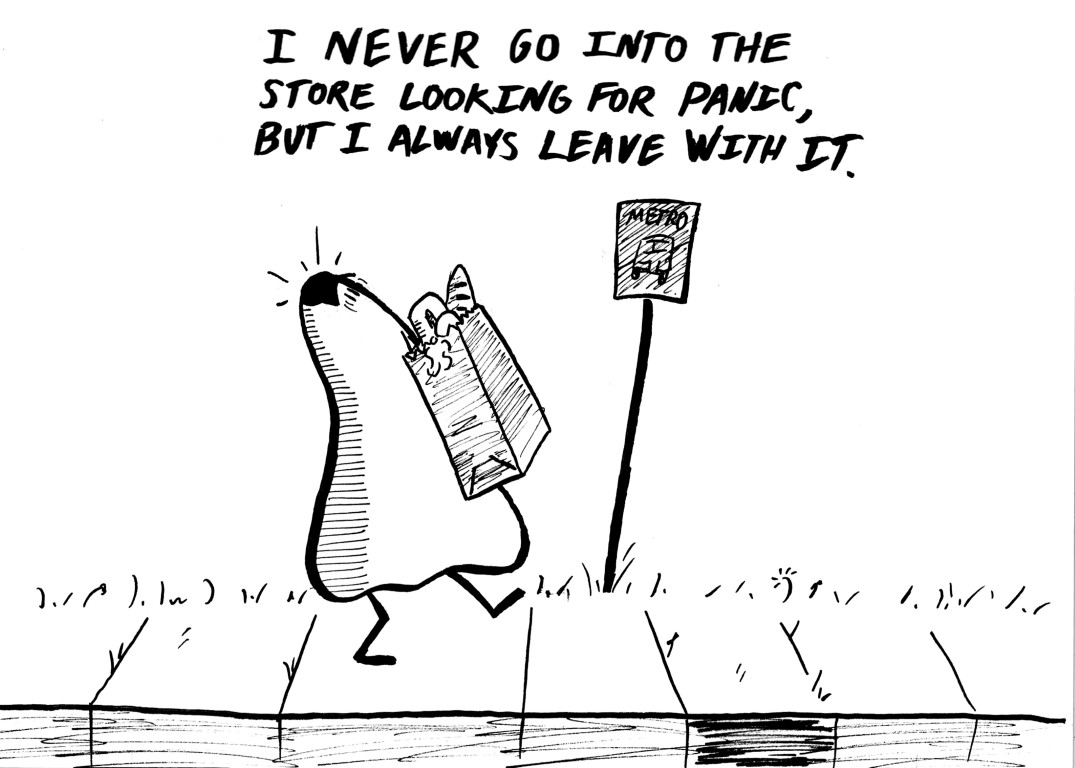 I NEVER GO INTO THE
STORE LOOKING FOR PANIC,
BUT I ALWAYS LEAVE WITH IT.
METRO